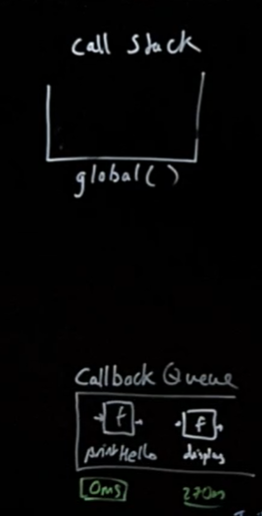 call stack
global( )
Callback Queue
f f
printHello display
0ms 270m